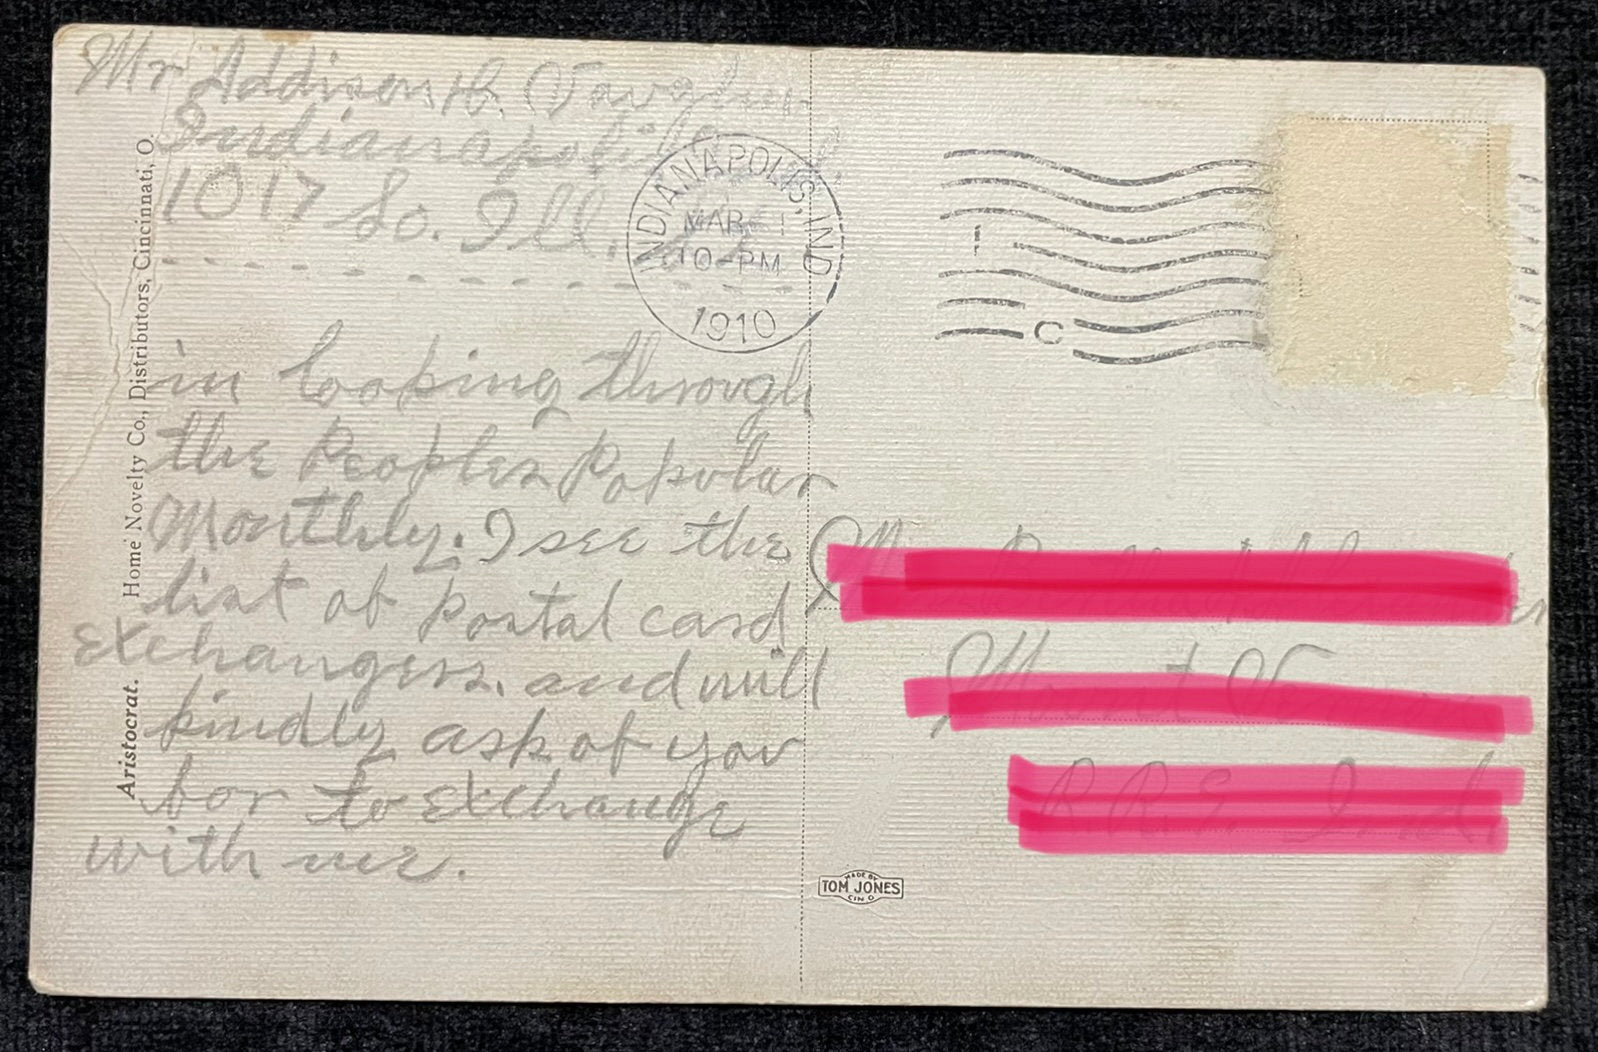 Mr Addison H. Vaughn
Indianapolis
1017 So. Ill. St.
in looking through
the Peoples Popular
Monthly. I see the
list of postal card
exchangers. and will
kindly ask of you
for to exchange
with me.
Aristocrat. Home Novelty Co., Distributors, Cincinnati, O.
INDIANAPOLIS, IND.
MAR 1
10-PM
1910
1
C
MADE BY
TOM JONES
CIN O